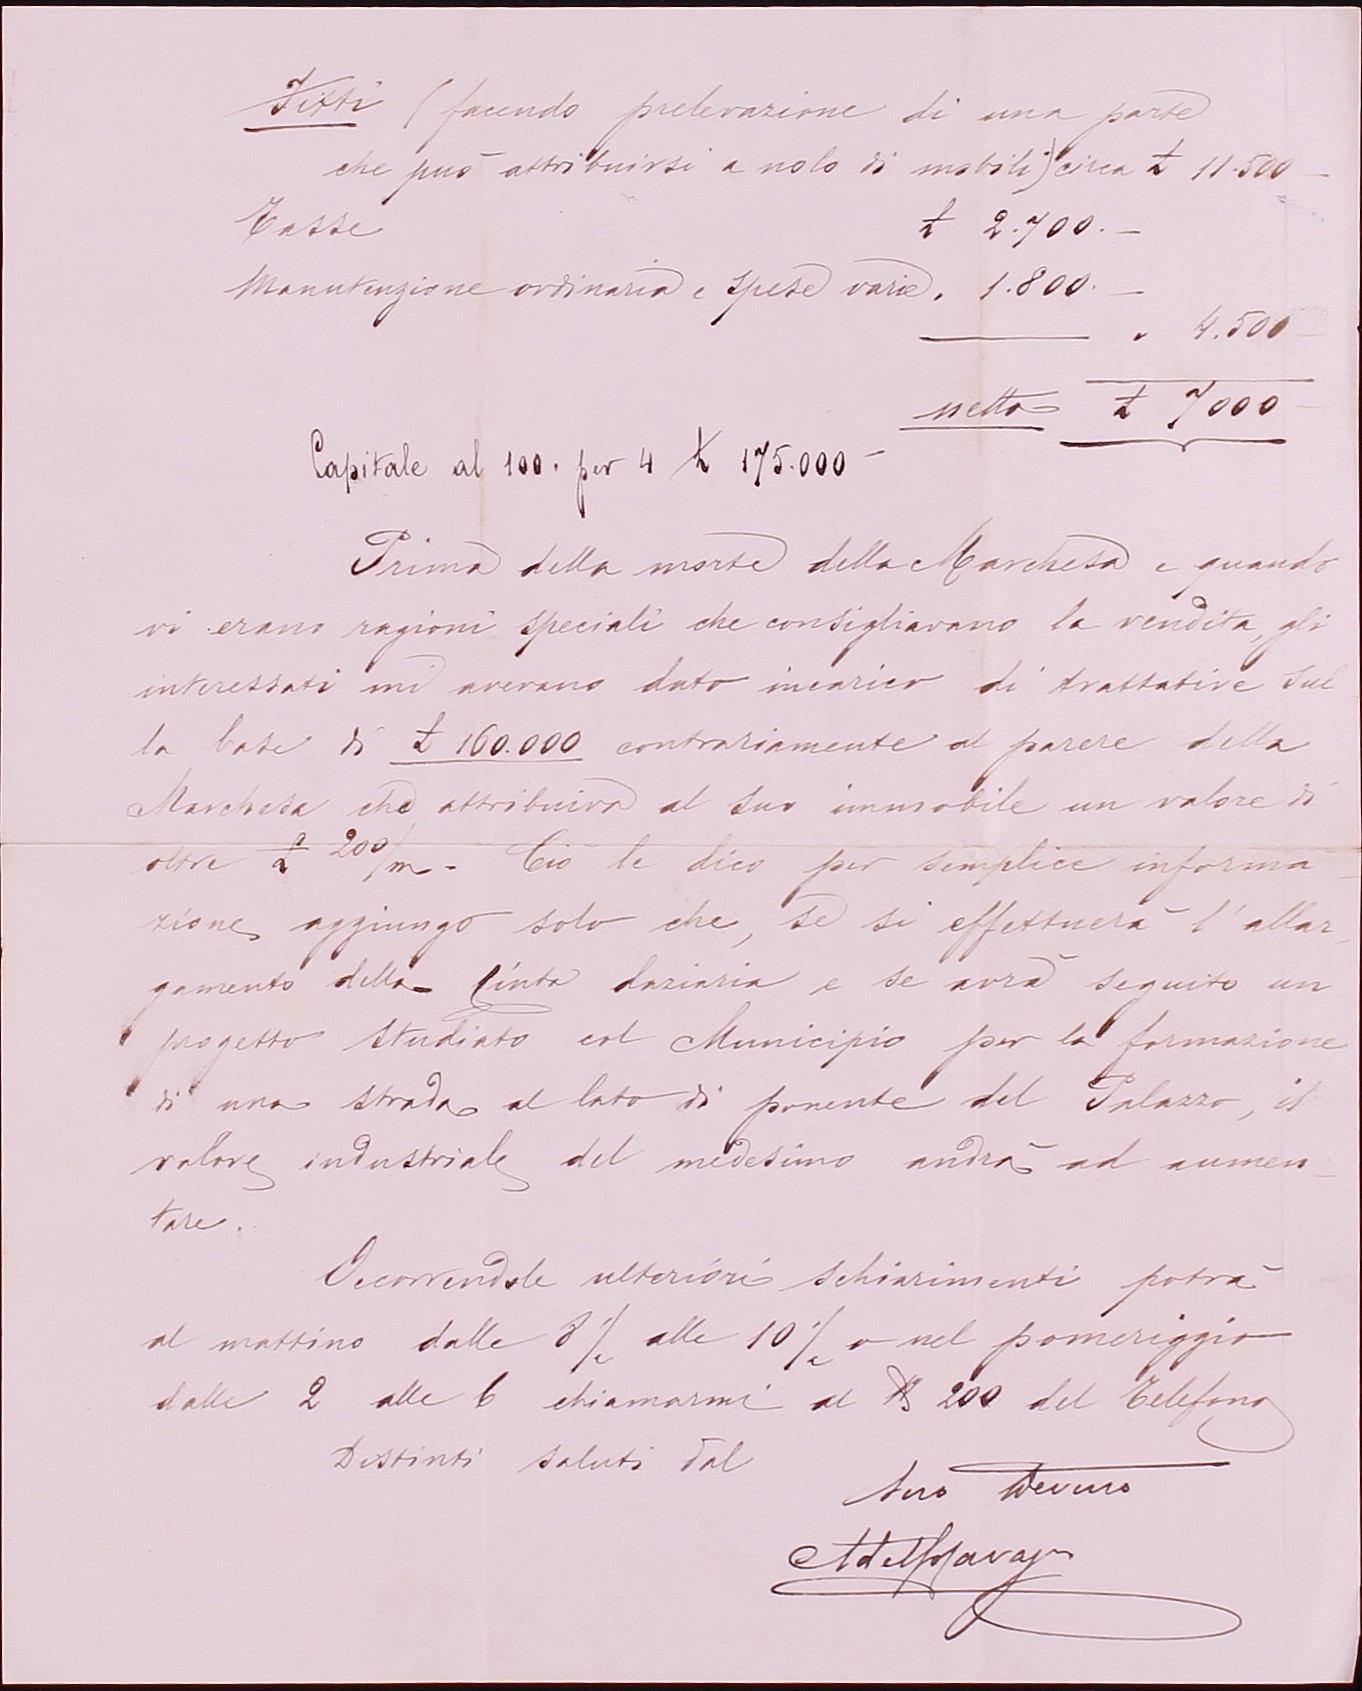 Fitti (facendo prelevazione di una parte
che può attribuirsi a nolo di mobili) circa £ 11.500 —
Tasse £ 2.700. —
Manutenzione ordinaria e spese varie " 1.800. —
" 4.500 —
netto £ 7000 —
Capitale al 100. per 4 £ 175.000 —
Prima della morte della Marchesa e quando
vi erano ragioni speciali che consigliavano la vendita, gli
interessati mi avevano dato incarico di trattative sul
la base di £ 160.000 contrariamente al parere della
Marchesa che attribuiva al suo immobile un valore di
oltre £ 200/m. Ciò le dico per semplice informa
zione, aggiungo solo che, se si effettuerà l'allar
gamento della Cinta daziaria e se avrà seguito un
progetto studiato col Municipio per la formazione
di una strada al lato di ponente del Palazzo, il
valore industriale del medesimo andrà ad aumen
tare.
Occorrendole ulteriori schiarimenti potrà
al mattino dalle 8 1/2 alle 10 1/2 o nel pomeriggio
dalle 2 alle 6 chiamarmi al N 200 del Telefono
Distinti saluti dal
Suo Devmo